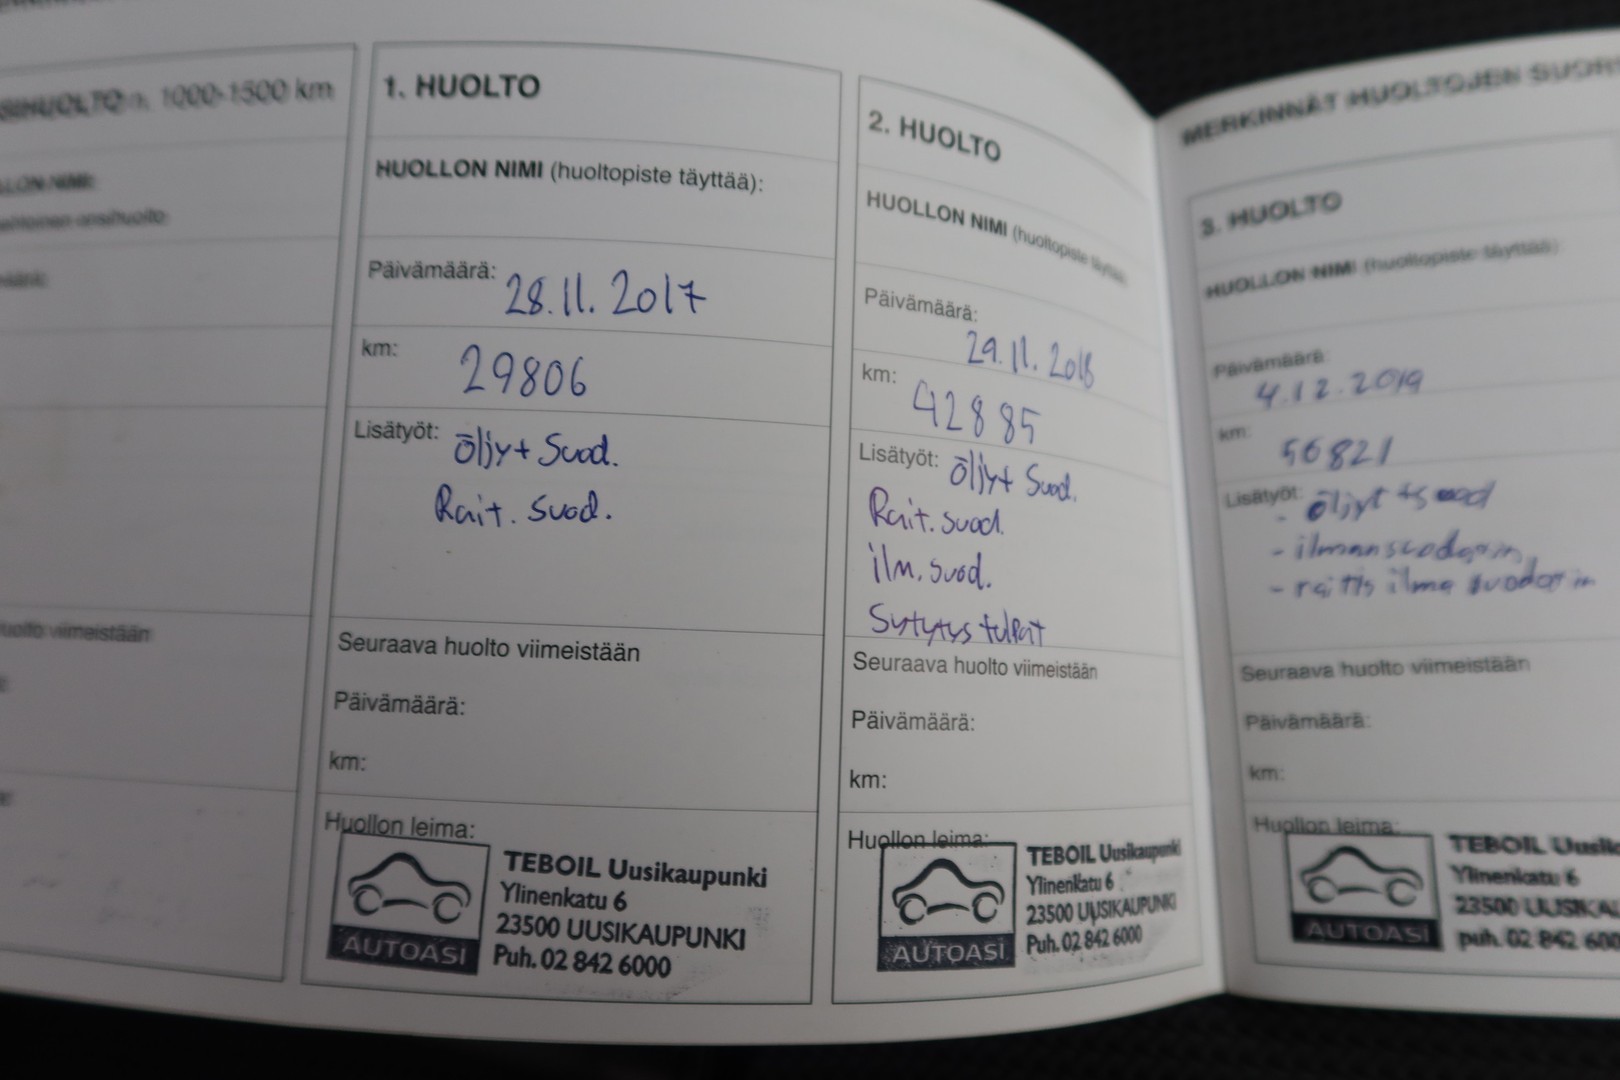 1000-1500 km
huolto viimeistään
1. HUOLTO
HUOLLON NIMI (huoltopiste täyttää):
Päivämäärä: 28.11.2017
km: 29806
Lisätyöt: öljy+ Suod.
Rait. Suod.
Seuraava huolto viimeistään
Päivämäärä:
km:
Huollon leima:
AUTOASI
TEBOIL Uusikaupunki
Ylinenkatu 6
23500 UUSIKAUPUNKI
Puh. 02 842 6000
2. HUOLTO
HUOLLON NIMI (huoltopiste täyttää):
Päivämäärä: 29.11.2018
km: 42885
Lisätyöt: öljy+ Suod.
Rait. suod.
ilm. suod.
Sytytys tulpat
Seuraava huolto viimeistään
Päivämäärä:
km:
Huollon leima:
AUTOASI
TEBOIL Uusikaupunki
Ylinenkatu 6
23500 UUSIKAUPUNKI
Puh. 02 842 6000
MERKINNÄT HUOLTOJEN
3. HUOLTO
HUOLLON NIMI (huoltopiste täyttää):
Päivämäärä: 4.12.2019
km: 56821
Lisätyöt: - öljyt +suod
- ilmansuodatin
- raitis ilma suodatin
Seuraava huolto viimeistään
Päivämäärä:
km:
Huollon leima:
AUTOASI
TEBOIL
Ylinenkatu 6
23500
puh. 02 842